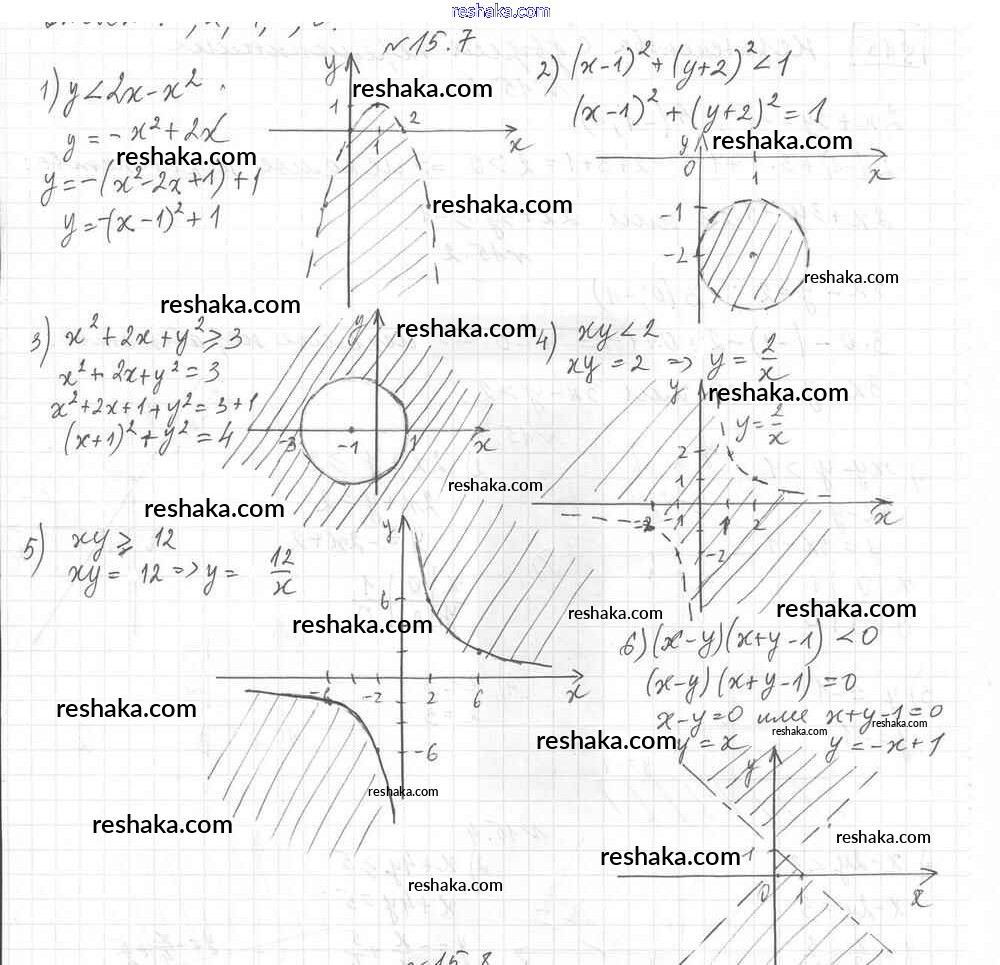 reshaka.com
№15.7
1) y < 2x - x²
y = -x² + 2x
y = -(x² - 2x + 1) + 1
y = -(x - 1)² + 1
y
1
1
2
x
reshaka.com
reshaka.com
reshaka.com
2) (x-1)² + (y+2)² < 1
(x-1)² + (y+2)² = 1
reshaka.com
y
0
1
x
-1
-2
reshaka.com
reshaka.com
3) x² + 2x + y² ≥ 3
x² + 2x + y² = 3
x² + 2x + 1 + y² = 3 + 1
(x+1)² + y² = 4
y
-3
-1
1
x
reshaka.com
reshaka.com
reshaka.com
4) xy < 2
xy = 2 => y = 2/x
reshaka.com
y
y = 2/x
2
1
-2
-1
1
2
x
-2
reshaka.com
5) xy ≥ 12
xy = 12 => y = 12/x
y
6
reshaka.com
reshaka.com
-6
-2
2
6
x
-6
reshaka.com
reshaka.com
reshaka.com
6) (x-y)(x+y-1) < 0
(x-y)(x+y-1) = 0
x-y=0 или x+y-1=0
y = x
y = -x+1
reshaka.com
reshaka.com
reshaka.com
y
reshaka.com
reshaka.com
1
0
1
x
reshaka.com
№15.8